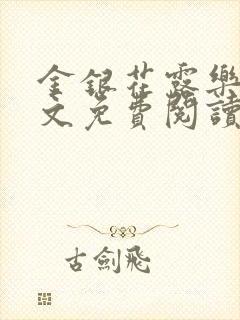 金銀花露樂
文免費閱讀
古劍飛